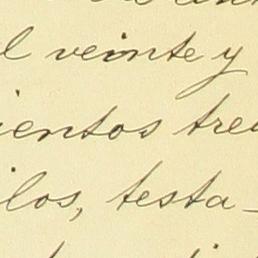 l veinte y
ientos tre
ilos, testa-